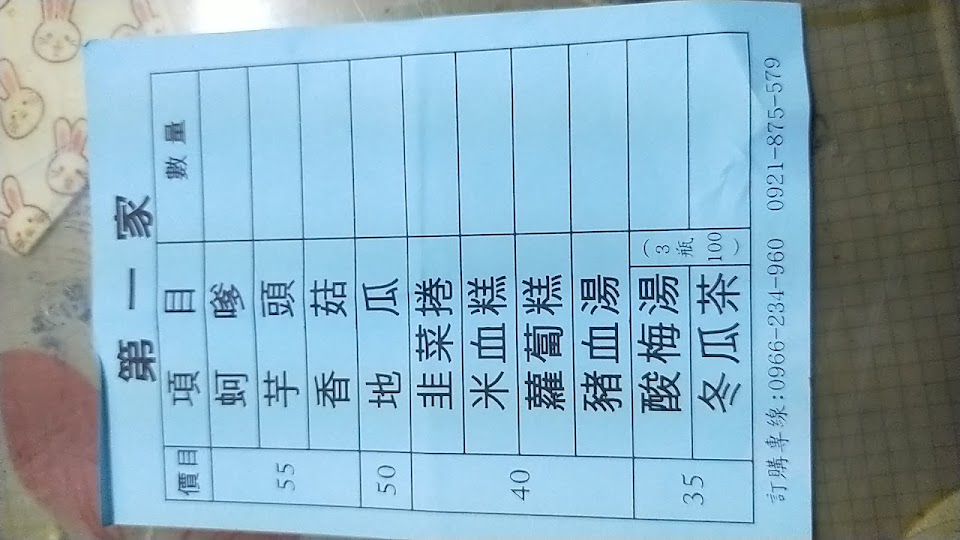 第一家
價目 項目 數量
55 蚵嗲
芋頭
香菇
50 地瓜
40 韭菜捲
米血糕
蘿蔔糕
豬血湯
35 酸梅湯 (3瓶100)
冬瓜茶
訂購專線:0966-234-960 0921-875-579